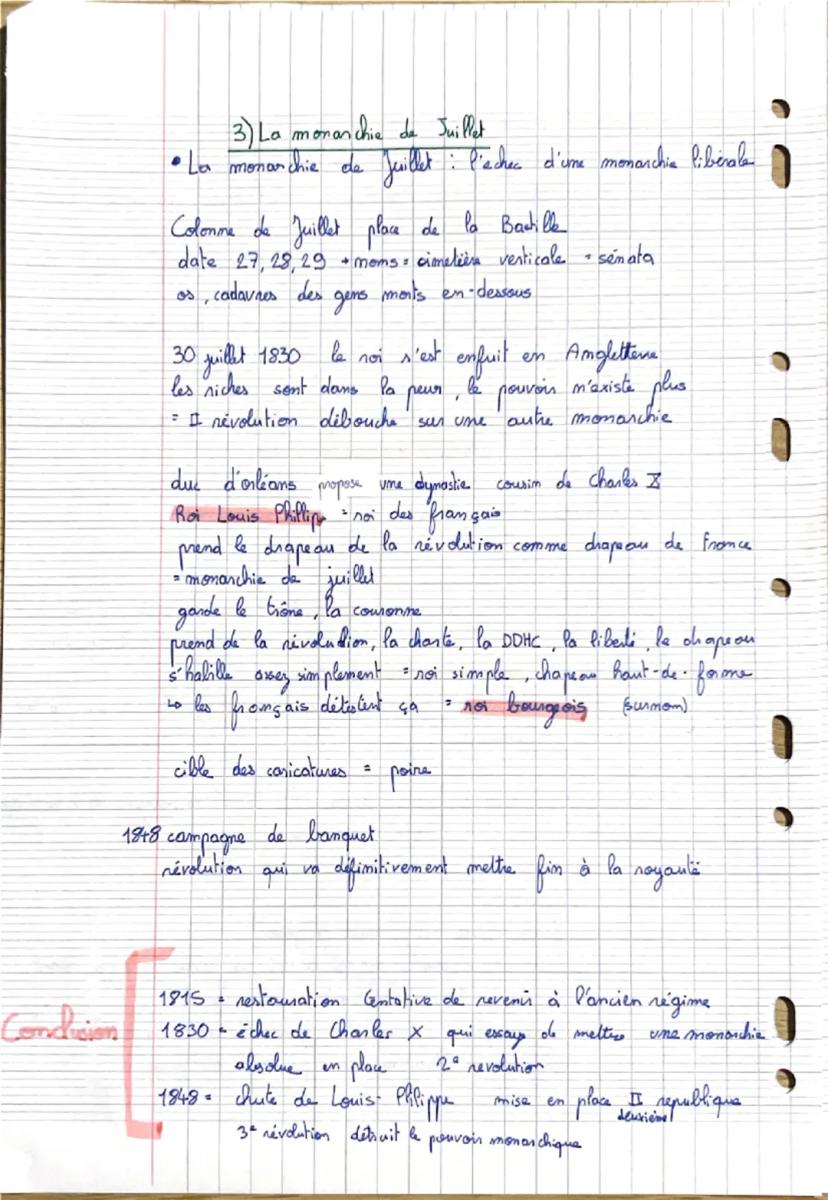 3) La monarchie de Juillet
• La monarchie de Juillet : l'echec d'une monarchie libérale
Colonne de Juillet place de la Bastille
date 27, 28, 29 + noms = cimetière verticale = sénata
os, cadavres des gens morts en-dessous
30 juillet 1830 le roi s'est enfuit en Angletterre
les riches sont dans la peur, le pouvoir n'existe plus
= II révolution débouche sur une autre monarchie
duc d'orléans propose une dynastie cousin de Charles X
Roi Louis Phillipe = roi des français
prend le drapeau de la révolution comme drapeau de France
= monarchie de juillet
garde le trône, la couronne
prend de la révolution, la charte, la DDHC, la liberté, le drapeau
s'habille assez simplement = roi simple, chapeau haut-de-forme
↳ les français détestent ça = roi bourgeois (surnom)
cible des caricatures = poire
1848 campagne de banquet
révolution qui va définitivement mettre fin à la royauté
Conclusion
1815 = restauration tentative de revenir à l'ancien régime
1830 = échec de Charles X qui essaye de mettre une monarchie
absolue en place 2e revolution
1848 = chute de Louis-Philippe mise en place II republique
deuxième
3e révolution détruit le pouvoir monarchique